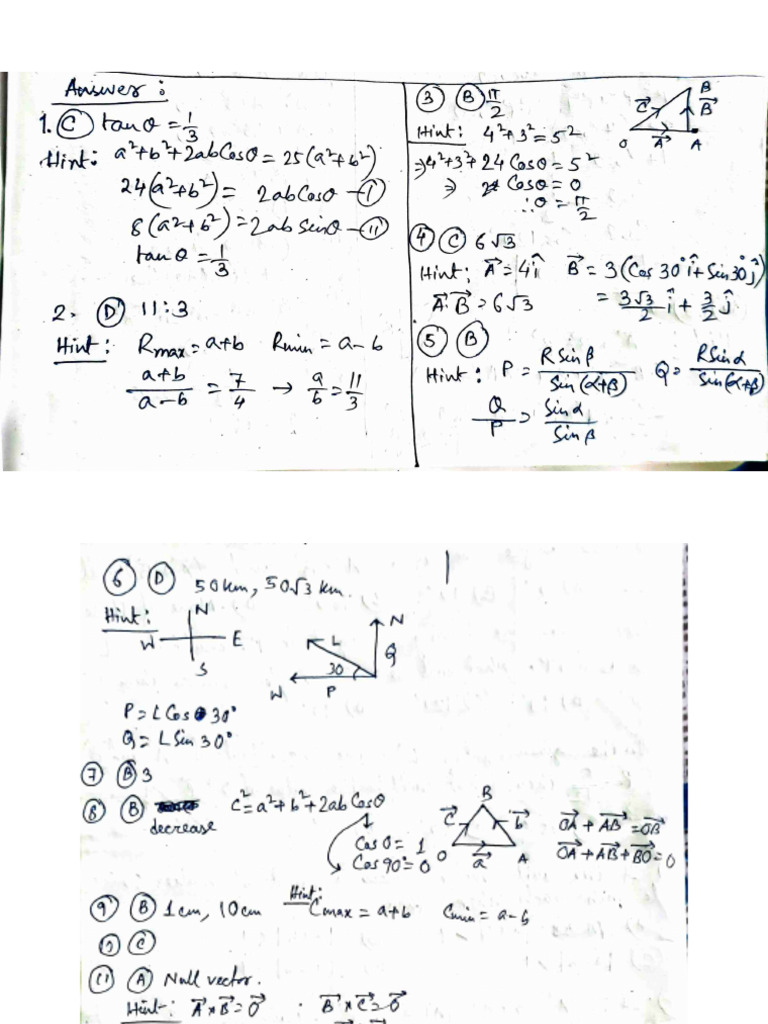 Answer :
1. (C) tanθ = 1/3
Hint: a²+b²+2abCosθ = 25(a²+b²)
24(a²+b²) = 2abCosθ –(I)
8(a²+b²) = 2ab Sinθ –(II)
tanθ = 1/3
2. (D) 11:3
Hint: Rmax = a+b Rmin = a-b
a+b/a-b = 7/4 → a/b = 11/3
(3) (B) π/2
Hint: 4²+3² = 5²
⇒ 4²+3²+24 Cosθ = 5²
⇒ 24 Cosθ = 0
∴θ = π/2
B
C⃗ B⃗
O A⃗ A
(4) (C) 6√3
Hint; A⃗ = 4î B⃗ = 3(Cos 30° î + Sin30° ĵ)
A⃗.B⃗ = 6√3 = 3√3/2 î + 3/2 ĵ
(5) (B)
Hint: P = R Sin β/Sin(α+β) Q = R Sin α/Sin(α+β)
Q/P = Sin α/Sin β
(6) (D) 50 km, 50√3 km.
Hint:
N
W E
S
N
L Q
30
W P
P = L Cos 30°
Q = L Sin 30°
(7) (B) 3
(8) (B) decrease
c² = a²+b²+2ab Cosθ
Cos 0 = 1
Cos 90° = 0
B
C⃗ b⃗
O a⃗ A
OA⃗ + AB⃗ = OB⃗
OA⃗ + AB⃗ + BO⃗ = 0
(9) (B) 1 cm, 10 cm Hint: Cmax = a+b Cmin = a-b
(C)
(11) (A) Null vector.
Hint: A⃗ × B⃗ = 0⃗ : B⃗ × C⃗ = 0⃗